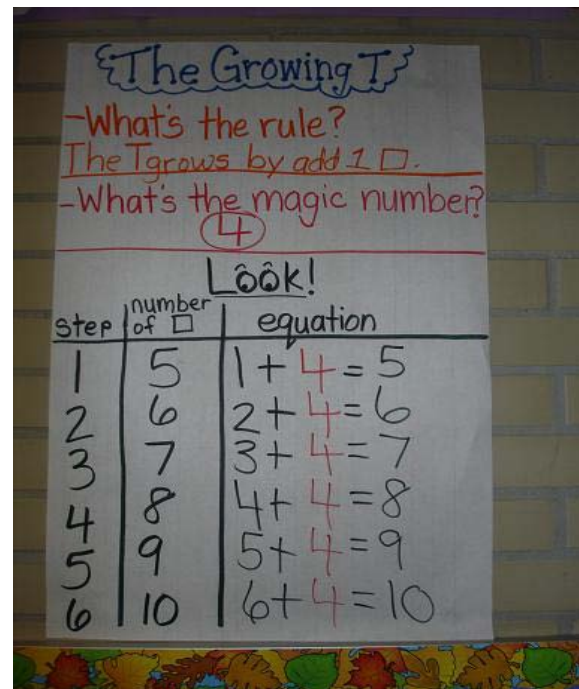 The Growing T
-What's the rule?
The T grows by add 1 □.
-What's the magic number?
4
Look!
step number of □ equation
1 5 1 + 4 = 5
2 6 2 + 4 = 6
3 7 3 + 4 = 7
4 8 4 + 4 = 8
5 9 5 + 4 = 9
6 10 6 + 4 = 10